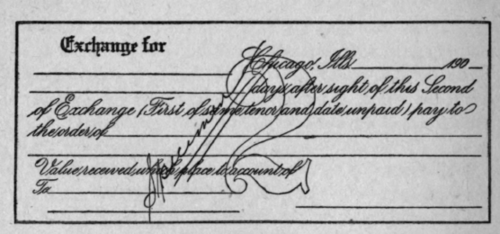 Exchange for
Chicago, Ills. 190
days after sight of this Second
of Exchange (First of same tenor and date unpaid) pay to
the order of
Value received, which place to account of
To
Specimen
2